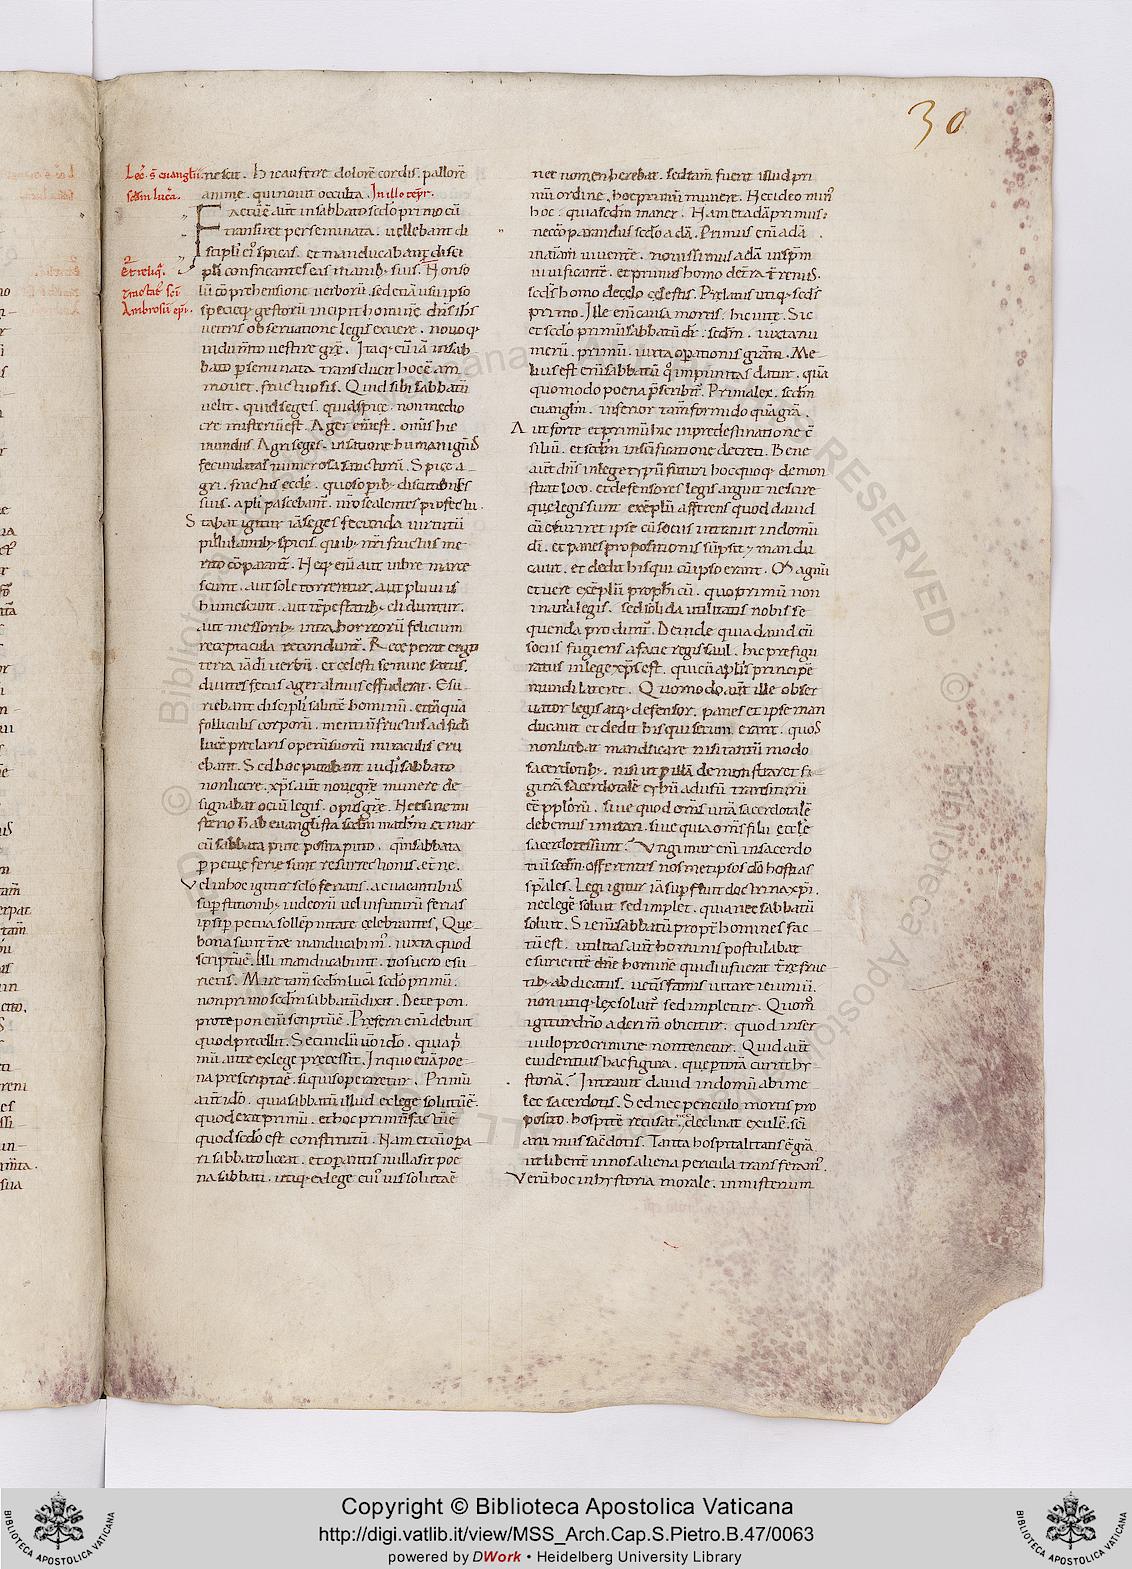 30
Lec̄. s̄ euangłii.
scđm lucā.
Et reliq̄.
Tractat̄ sc̄i
Ambrosii ep̄i.
nescit. hic aufert e dolorē cordis. pallorē
anime. qui nouit occulta. In illo tēpr̄.
Factū ē aūt in sabbato scđo primo cū
transiret per seminata. uellebant di
scipli ei᾽ spicas. et manducabant disci
pli confricantes eas manib; suis. Non so
lū cōprehensione uerborū. sed etiā usu ipso
specieq; gestorū incipit hominē dn̄s ih̄s
ueteris obseruatione legis exuere. nouoq;
indumto uestire gr̄e. Itaq; cū iā in sab
bato p seminata transducit hoc ē am
mouet. fructuosis. Quid sibi sabbatū
uelit. quid seges. quid spice. non medio
cre misteriū est. Ager eni est. om̄is hic
mundus. Agri seges. in satione humani gn̄is
fecunditas numerosa sanctorū. Spice a
gri. fructus eccłe. quos opib; discutientes
suis. apłi pascebant. nr̄o se alentes profectu.
Stabat igitur iā seges fecunda uirtutū
pullulantib; spicis. quib; nr̄i fructus me
rito cōparant̄. Neq; eni aut imbre marce
scunt. aut sole torrentur. aut pluuiis
humescunt. aut tēpestatib; eliduntur.
aut messorib; intra horreorū felicium
receptacula recondunt̄. Rcceperat ergo
terra iā di uerbū. et celesti semine satus.
diuites fetus ager almus effuderat. Esu
riebant discipli salutē hominū. et tāquā
folliculis corporū. mentiū fructus ad fidei
lucē preclaris operū suorū miraculis eru
ebant. Sed hoc putabant iudei sabbato
non licere. xp̄s aūt noue gr̄e munere de
signabat ociū legis. opus gr̄e. Nec sine mi
sterio habes euanglista scđm mathm̄ et mar
cū sabbata pure posita primo. qm̄ sabbata
ppetue ferie sunt resurrectionis et̄ne.
Vel in hoc igitur sclo feriatis. ac uacantibus
supstitionib; iudeorū uel in futurū ferias
ipsi p petua sollēpnitate celebrantes. Que
bona sunt t̄re manducabim᾽. iuxta quod
scriptū ē. Illi manducabunt. uos uero esu
rietis. Mire tam̄ scđm lucā scđo primū.
non primo scđm sabbatū dixit. Dete pon.
prote pon eni scriptū ē. Preferri eni debuit
quod precellit. Secundū ūo ido. quia p
mū ante ex lege precessit. In quo erā poe
na prescripta ē. siquis operaretur. Primū
aūt ido. quia sabbatū illud ex lege solutū ē.
quod erat primū. et hoc primū factū ē
quod scđo est constitutū. Nam et cū opa
ri sabbato liceat. et opantis nulla sit poe
na sabbati. utiq; ex lege cui᾽ uis soluta ē
nec nomen herebat. sed tam̄ fuerit illud pri
mū ordine. hoc primū munere. Nec ideo min᾽
hoc. quia scđm manet. Nam et adā primus.
nec cōparandus scđo adā. Primus eni adā
in aīam uiuentē. nouissimus adā in spm̄
uiuificantē. et primus homo de t̄ra t̄renus.
scđs homo de celo celestis. Prelatus utiq; scđs
primo. Ille eni causa mortis. hic uite. Sic
et scđo primū sabbatū dr̄. scđm. iuxta nu
merū. primū. iuxta opationis gr̄am. Me
lius est eni sabbatū q̄ impunitas datur. quā
quomodo poena pscribit̄. Prima lex. scđm
euanglm̄. inferior tam̄ formido quā gr̄a.
Aut forte et primū hic in predestinatione c̄
siliū. et scđm in sc̄ificatione decreti. Bene
aūt dn̄s in lege typū futuri hoc quoq; demon
strat loco. et defensores legis arguit nescire
que legis sunt. exēplū afferens quod dauid
cū esuriret ipse cū sociis intrauit in domū
di. et panes propositionis sūpsit; mandu
cauit. et dedit his qui cū ipso erant. O magnū
et uere exēplū prophicū. quo primū non
inania legis. sed solida utilitatis nobis se
quenda produnt̄. Deinde quia dauid cū
sociis fugiens a facie regis saul. hic prefigu
ratus in lege xp̄s est. qui cū aplis principē
mundi lateret. Quomodo aūt ille obser
uator legis atq; defensor. panes et ipse man
ducauit et dedit his qui secum erant. quos
non licebat manducare nisi tantū modo
sacerdotib;. nisi ut p illā demonstraret fi
gurā sacerdotalē cybū ad usū transiturū
ēē pplorū. siue quod om̄s uitā sacerdotalē
debemus imitari. siue quia om̄s filii eccłe
sacerdotes sunt. Vngimur eni in sacerdo
tiū scđm. offerentes nosmetipsos do hostias
spiales. Legi igitur iā supfluit doctrina xp̄i.
nec legē soluit sed implet. quia nec sabbatū
soluit. Si eni sabbatū propt̄ homines fac
tū est. utilitas aūt hominis postulabat
esurientē dn̄e hominē qui diu fuerat t̄re fruc
tib; abdicatus. uet̄is famis uitare ieiuniū.
non utiq; lex soluit̄ sed impletur. Quom̄
igitur dn̄o ad erim̄ obicitur. quod in ser
uulo pro crimine non tenetur. Quid aūt
euidentius hac figura. que ptotā currit hy
storiā. Intrauit dauid in domū abime
lec sacerdotis. Sed nec periculo mortis pro
posito. hospitē recusat. nec declinat exulē. sc̄i
animus sac̄dotis. Tanta hospitalitatis ē gr̄a
ut libent̄ in nos aliena pericula transferam᾽.
Verū hoc in hystoria morale. in misterium
Copyright © Biblioteca Apostolica Vaticana
http://digi.vatlib.it/view/MSS_Arch.Cap.S.Pietro.B.47/0063
powered by DWork • Heidelberg University Library
BIBLIOTECA APOSTOLICA VATICANA
BIBLIOTECA APOSTOLICA VATICANA